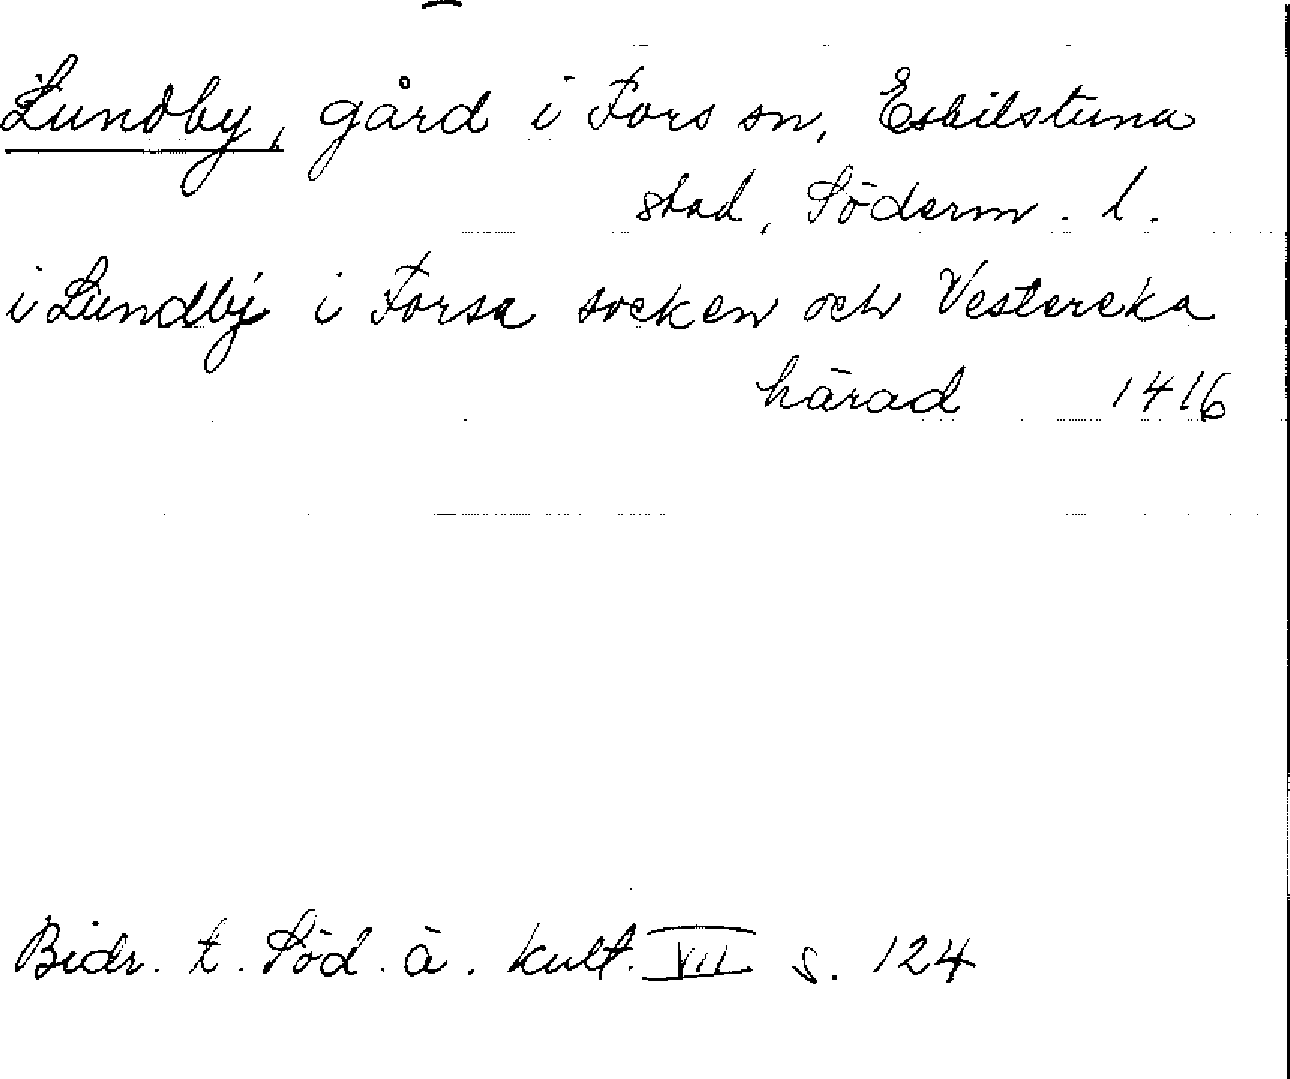 Lundby, gård i Fors sn, Eskilstuna
stad, Söderm. l.
i Lundby i Forsa socken och Vestereka
härad 1416
Bidr. t. Söd. ä. kult. VII s. 124